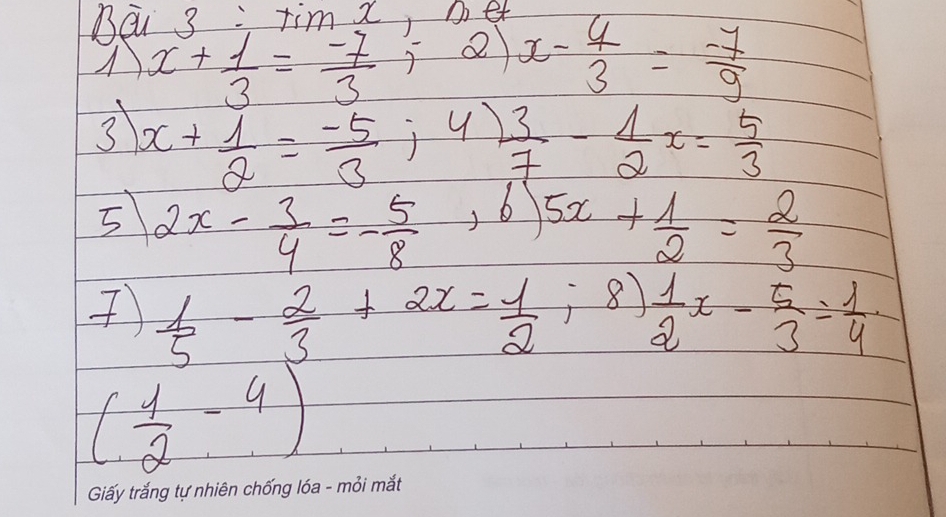 Bài 3 : tìm x, biết
1) x + 1/3 = -7/3 ; 2) x - 4/3 = -7/9
3) x + 1/2 = -5/3 ; 4) 3/7 - 1/2 x = 5/3
5) 2x - 3/4 = -5/8 , 6) 5x + 1/2 = 2/3
7) 1/5 - 2/3 + 2x = 1/2 ; 8) 1/2 x - 5/3 = 1/4.
(1/2 - 4)
Giấy trắng tự nhiên chống lóa - mỏi mắt